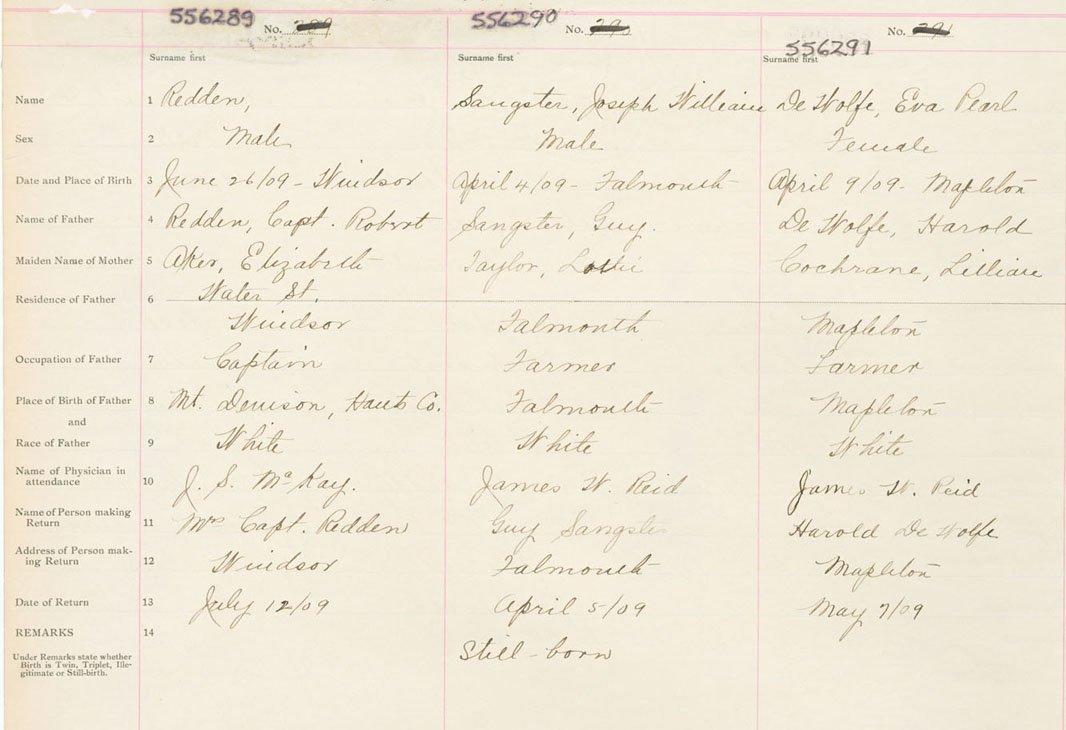 556289 556290 556291
No. No. No.
Surname first Surname first Surname first
Name 1 Redden, Sangster, Joseph William De Wolfe, Eva Pearl
Sex 2 Male Male Female
Date and Place of Birth 3 June 26/09 - Windsor April 4/09 - Falmouth April 9/09 - Mapleton
Name of Father 4 Redden, Capt. Robert Sangster, Guy. De Wolfe, Harold
Maiden Name of Mother 5 Aker, Elizabeth Taylor, Cochrane, Lillian
Water St.
Residence of Father 6
Windsor Falmouth Mapleton
Occupation of Father 7 Captain Farmer Farmer
Place of Birth of Father 8 Mt. Denison, Hants Co. Falmouth Mapleton
and
Race of Father 9 White White White
Name of Physician in
attendance 10 J. S. McKay. James W. Reid James W. Reid
Name of Person making
Return 11 Mrs Capt. Redden Guy Sangster Harold De Wolfe
Address of Person mak-
ing Return 12 Windsor Falmouth Mapleton
Date of Return 13 July 12/09 April 5/09 May 7/09
REMARKS 14
Still-born
Under Remarks state whether
Birth is Twin, Triplet, Ille-
gitimate or Still-birth.